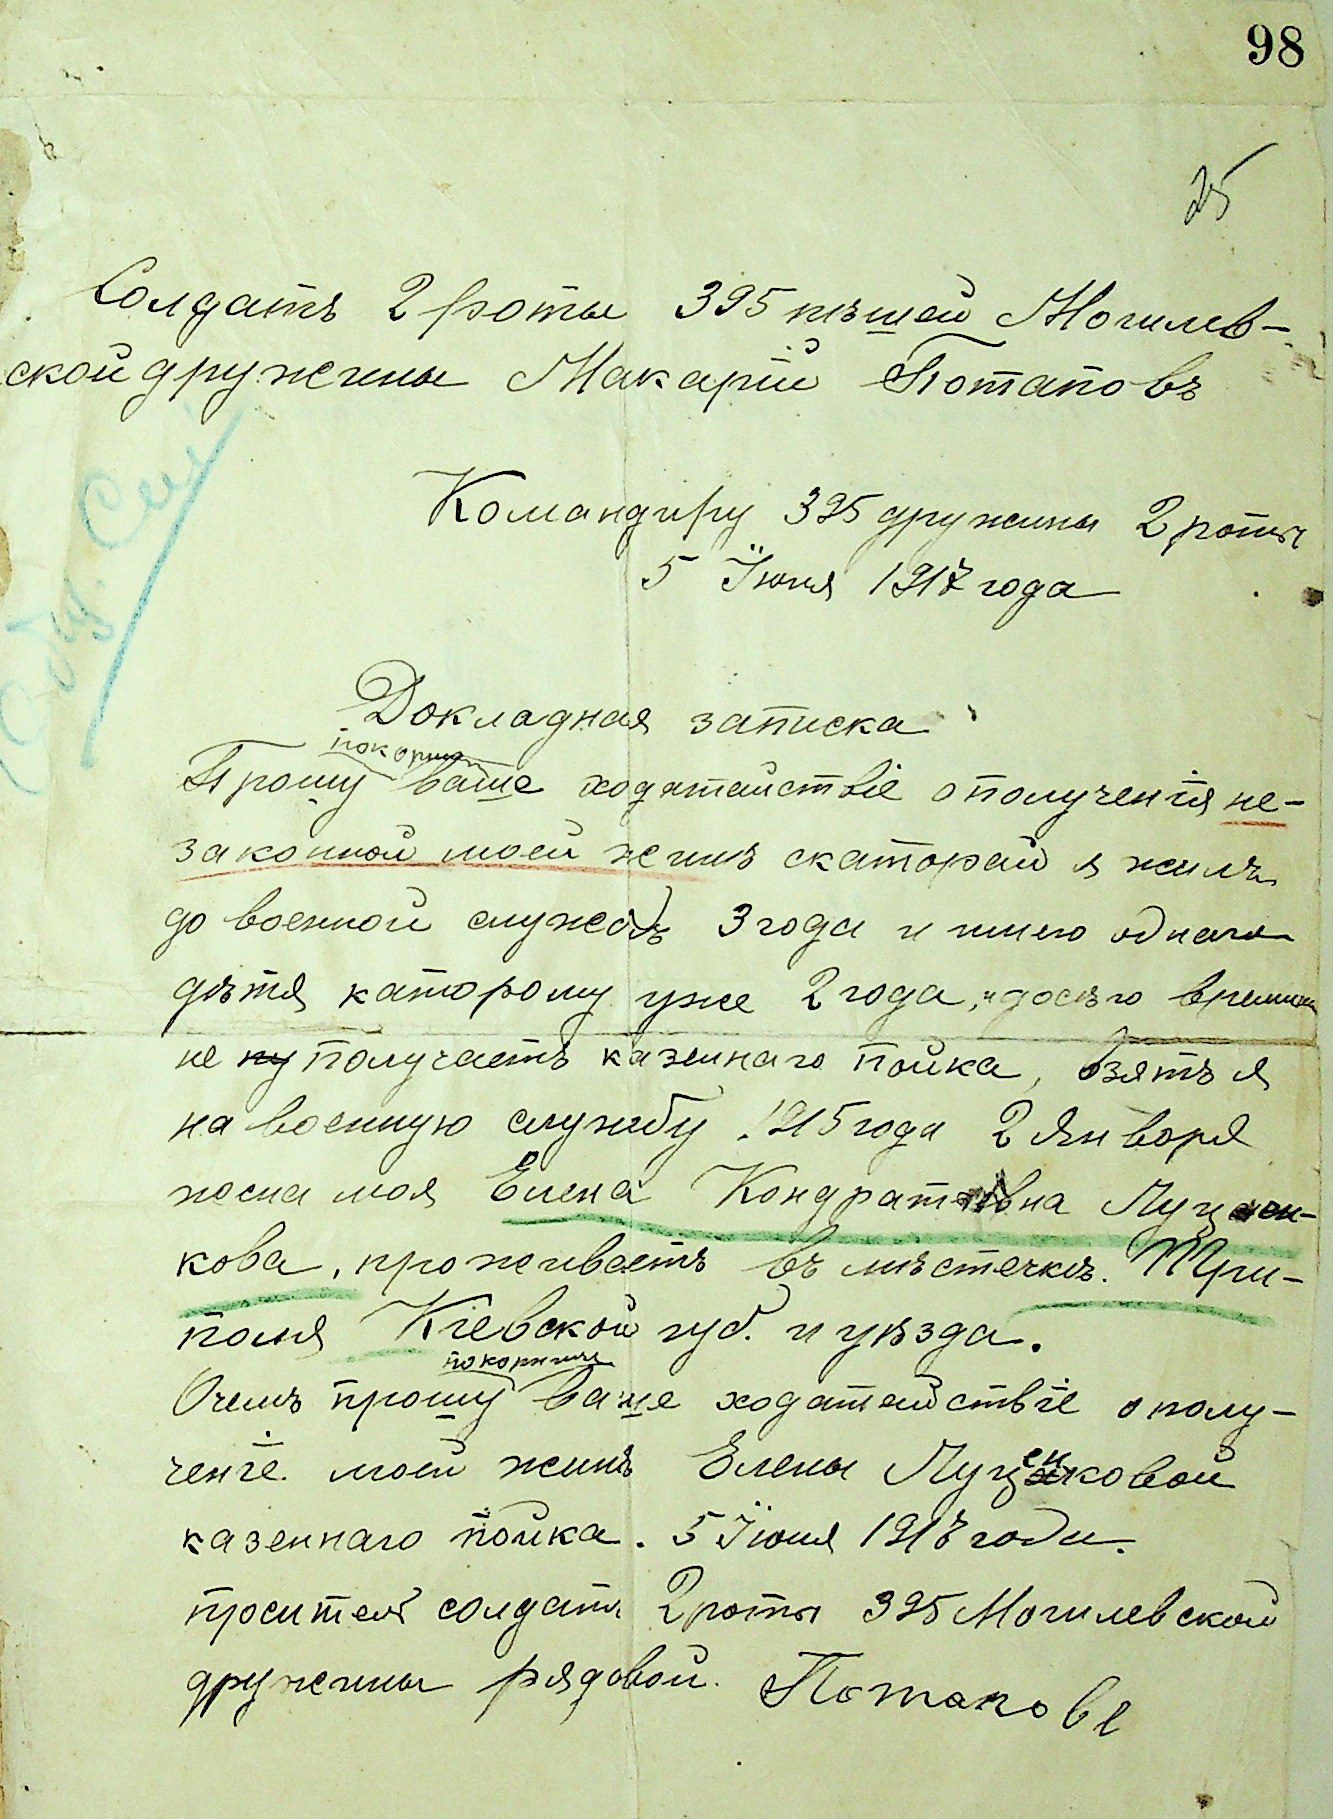 98
25
Солдатъ 2 роты 395 пѣшей Могилев-
ской дружины Макарій Потаповъ
Командиру 395 дружины 2 роты
5 Їюня 1917 года
Докладная записка
покорнѣ
Прошу ваше ходатайствіе ополученія не-
законной моей женѣ скаторай я жилъ
до военной службѣ 3 года и имею однаго
дѣтя каторому уже 2 года, и досѣго времини
не ну получаетъ казеннаго пойка, взятъ я
на военную службу 1915 года 2 Января
жена моя Елена Кондратовна Луцен-
кова, проживаетъ въ мѣстечкѣ. Три-
полія Кіевской губ. и уѣзда.
покорнише
Очемъ прошу ваше ходатайствіе ополу-
ченіе. моей женѣ Елены Луценковой
казеннаго пойка. 5 Їюня 1917 года.
проситель солдатъ 2 роты 395 Могилевской
дружины рядовой. Потаповъ